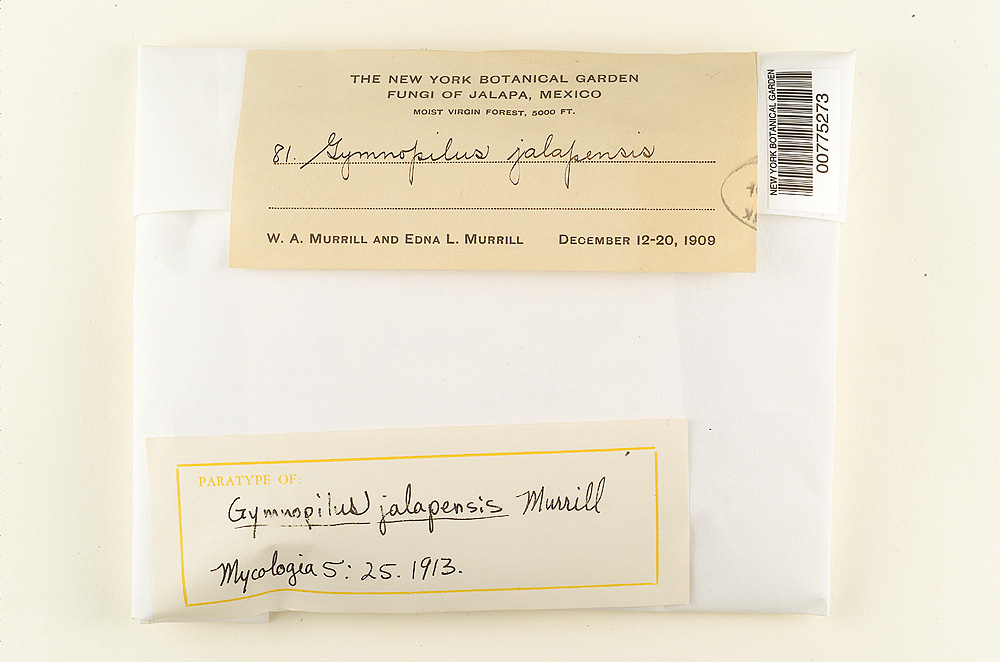 THE NEW YORK BOTANICAL GARDEN
FUNGI OF JALAPA, MEXICO
MOIST VIRGIN FOREST, 5000 FT.
81. Gymnopilus jalapensis
W. A. MURRILL AND EDNA L. MURRILL DECEMBER 12-20, 1909
NEW YORK BOTANICAL GARDEN
00775273
PARATYPE OF:
Gymnopilus jalapensis Murrill
Mycologia 5: 25. 1913.